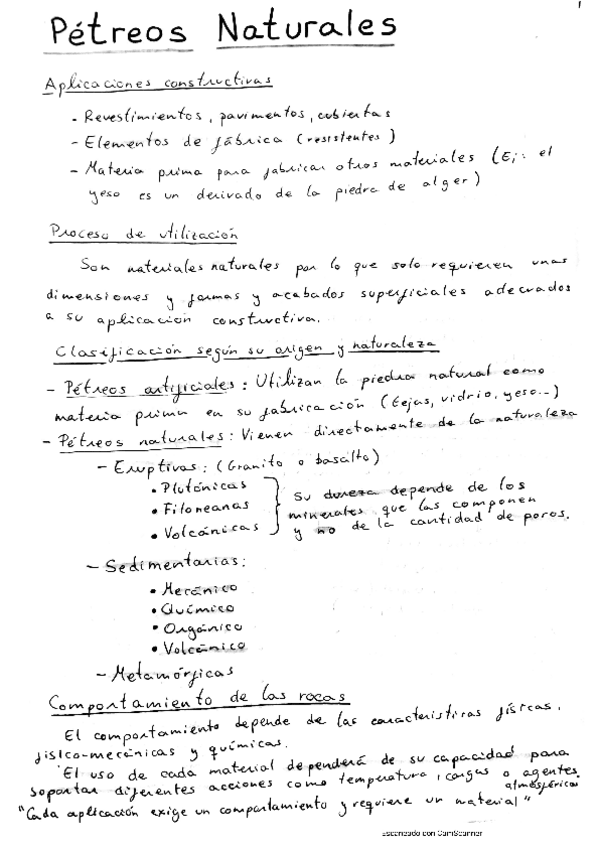 1
Pétreos Naturales
Aplicaciones constructivas
- Revestimientos, pavimentos, cubiertas
- Elementos de fábrica (resistentes)
- Materia prima para fabricar otros materiales (Ej: el
yeso es un derivado de la piedra de alger)
Proceso de utilización
Son materiales naturales por lo que solo requieren unas
dimensiones y formas y acabados superficiales adecuados
a su aplicación constructiva.
Clasificación según su origen y naturaleza
- Pétreos artificiales: Utilizan la piedra natural como
materia prima en su fabricación (tejas, vidrio, yeso...)
- Pétreos naturales: Vienen directamente de la naturaleza
- Eruptivas: (Granito o basalto)
• Plutónicas
• Filoneanas
• Volcánicas
Su dureza depende de los
minerales que las componen
y no de la cantidad de poros.
- Sedimentarias:
• Mecánico
• Químico
• Orgánico
• Volcánico
- Metamórficas
Comportamiento de las rocas
El comportamiento depende de las características físicas,
físico-mecánicas y químicas.
El uso de cada material dependerá de su capacidad para
soportar diferentes acciones como temperatura, cargas o agentes
atmosféricos
"Cada aplicación exige un comportamiento y requiere un material"
Escaneado con CamScanner